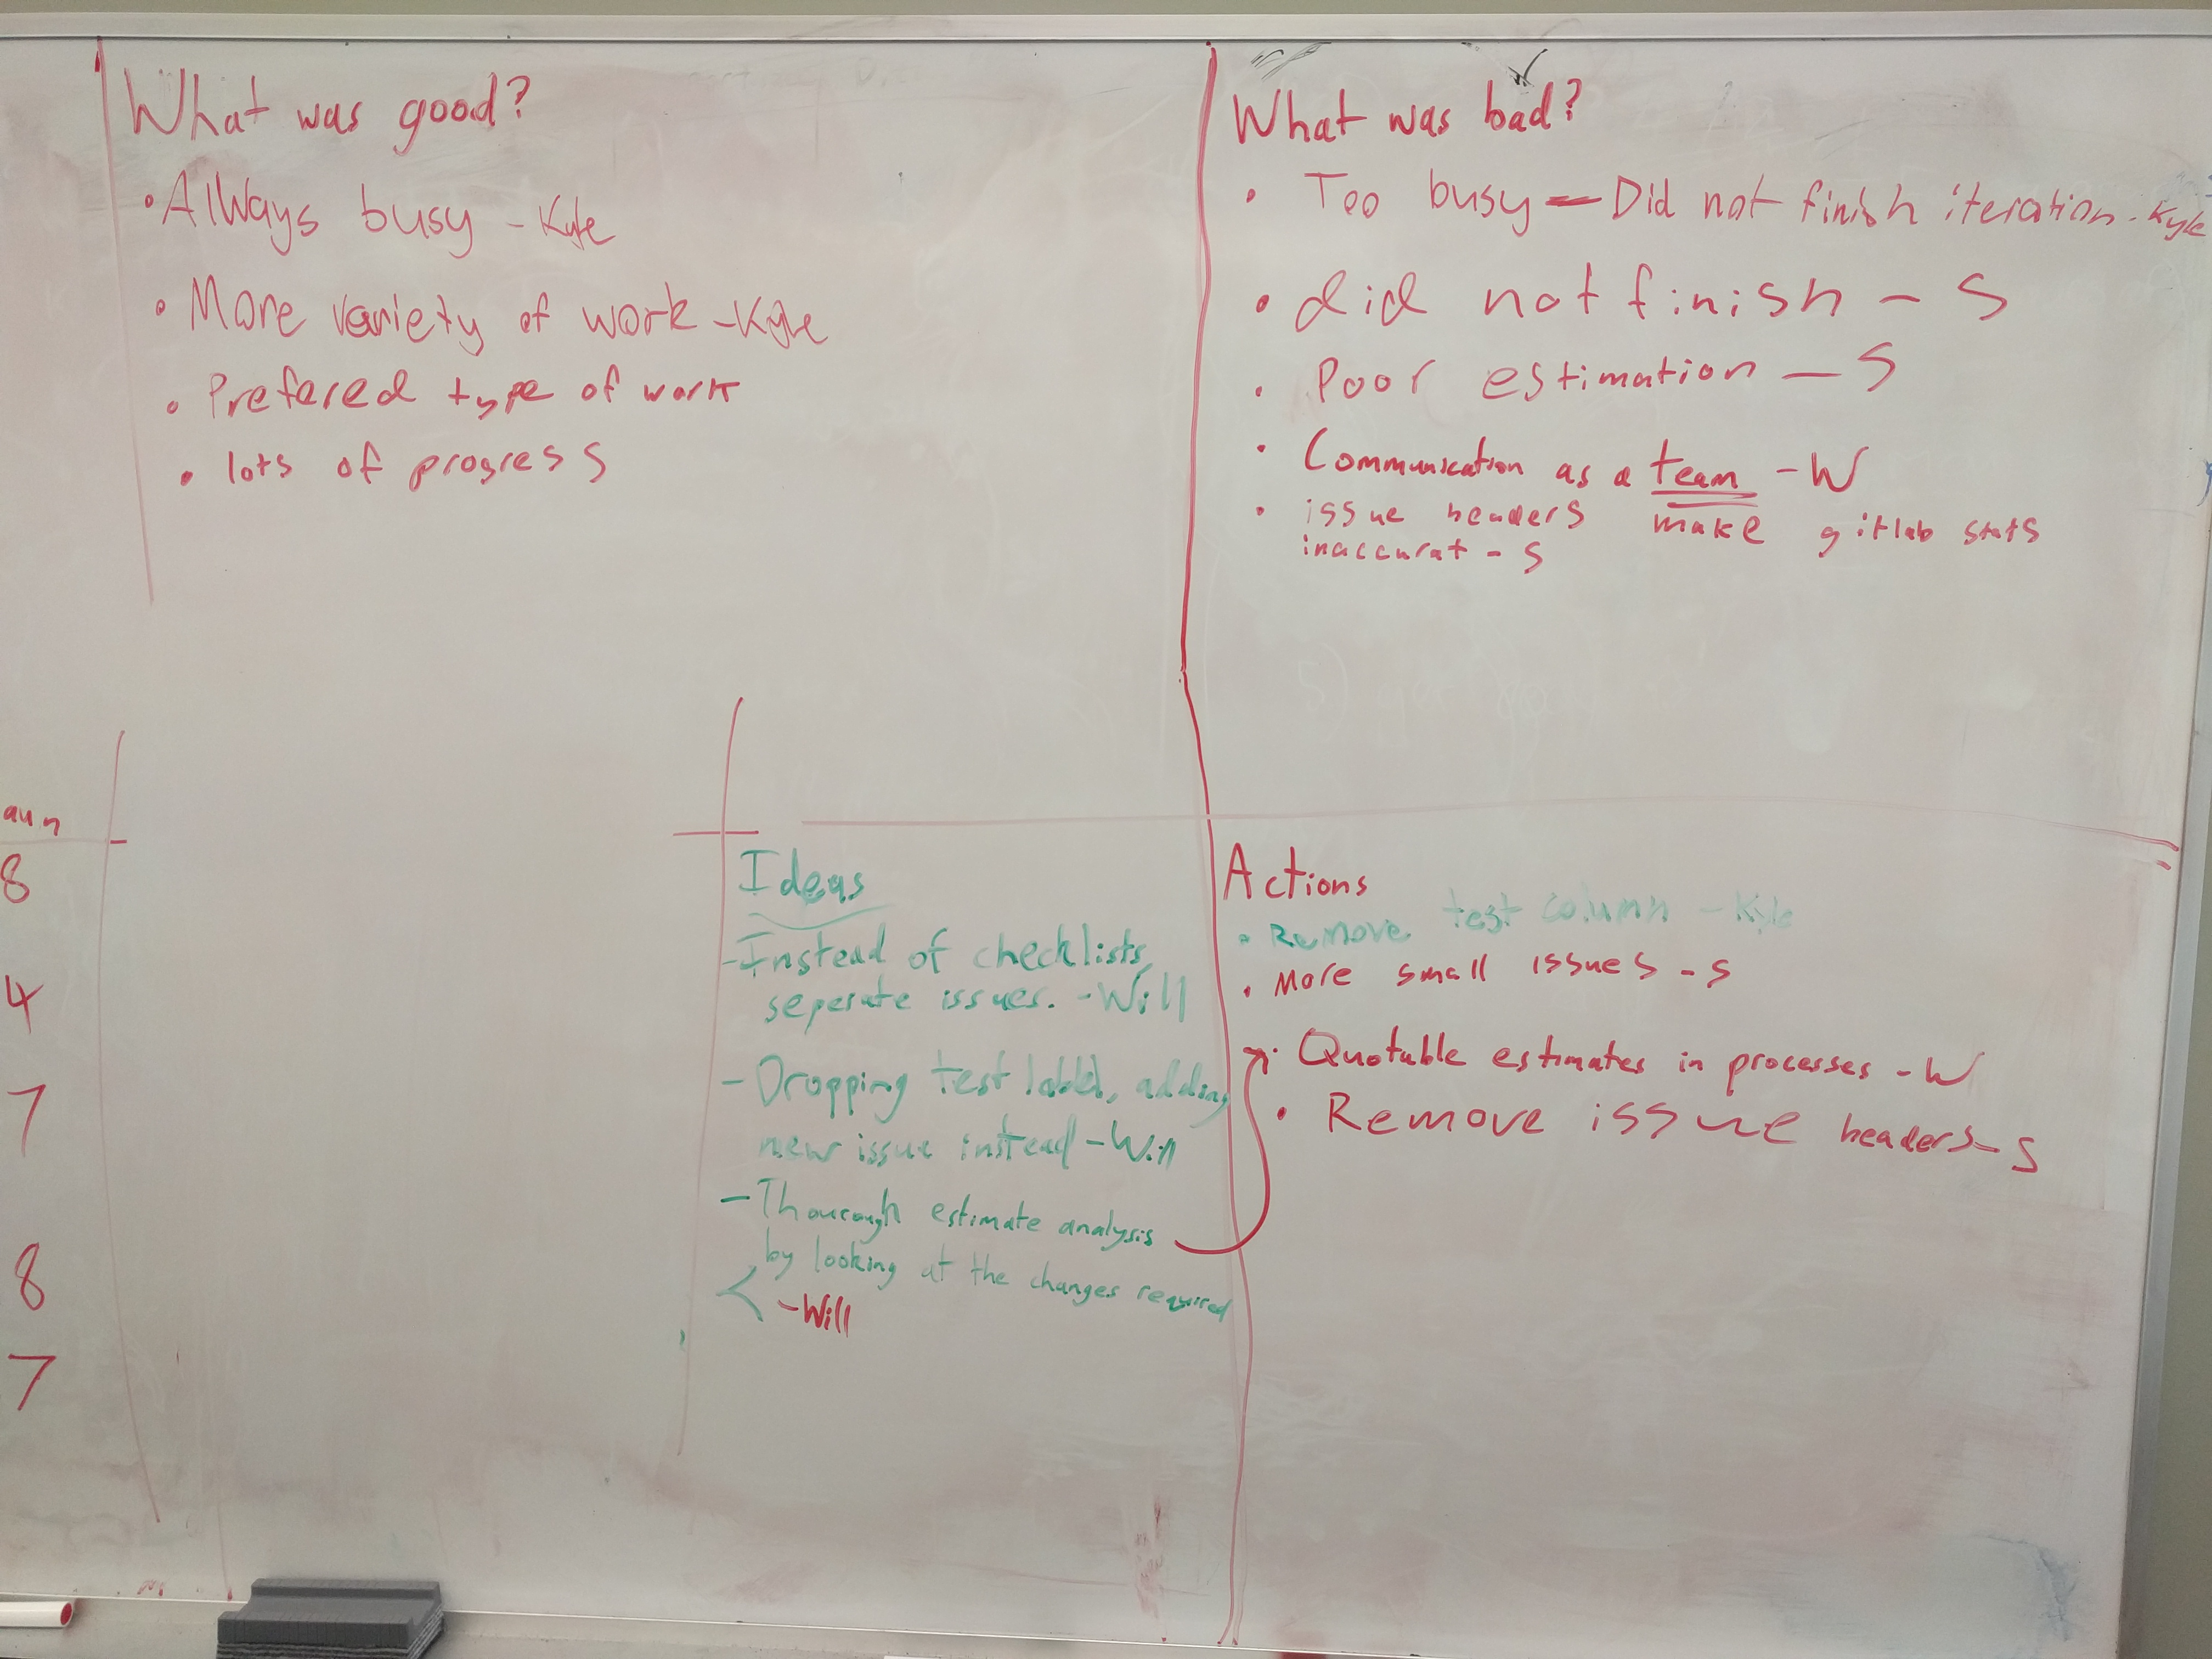 What was good?
• Always busy - Kyle
• More variety of work - Kyle
• Prefared type of work
• lots of progress
What was bad?
• Too busy — Did not finish iteration - Kyle
• did not finish - S
• Poor estimation - S
• Communication as a team - W
• issue headers make gitlab stats
inaccurat - S
8
4
7
8
7
Ideas
- Instead of checklists,
seperate issues. - Will
- Dropping test label, adding
new issue instead - Will
- Thourough estimate analysis
by looking at the changes required
- Will
Actions
• Remove test column - Kyle
• More small issues - S
• Quotable estimates in processes - W
• Remove issue headers - S